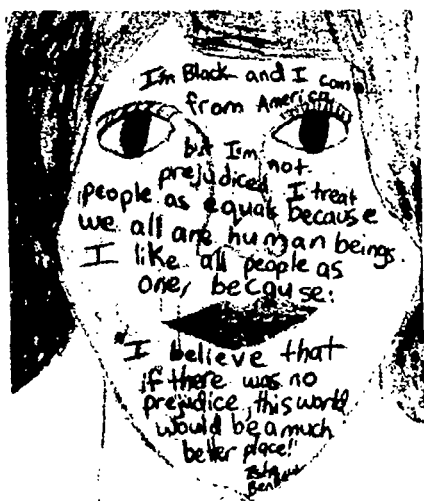 I'm Black and I come
from America
but I'm not
prejudiced I treat
people as equals because
we all are human beings.
I like all people as
one, because:
"I believe that
if there was no
prejudice, this world
would be a much
better place!"
Bennett